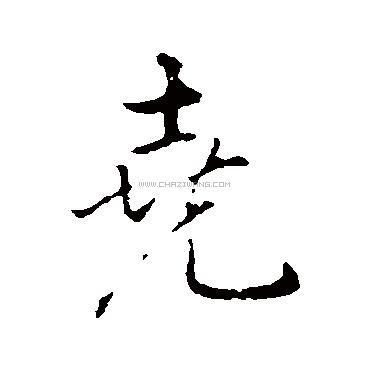 堯
WWW.CHAZIWANG.COM